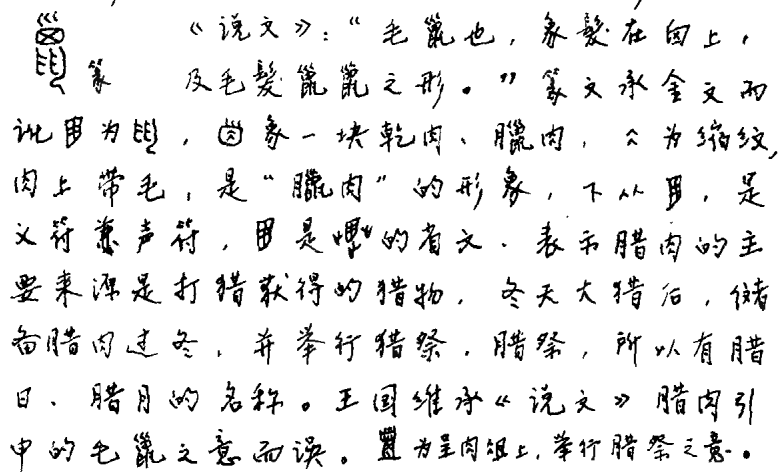 篆 《说文》：“毛巤也，象髮在囟上，
及毛髮巤巤之形。”篆文承金文而
讹为，象一块乾肉、臘肉，为缩纹，
肉上带毛，是“臘肉”的形象，下从，是
义符兼声符，是的省文．表示腊肉的主
要来源是打猎获得的猎物．冬天大猎后，储
备腊肉过冬，并举行猎祭．腊祭，所以有腊
日、腊月的名称。王国维承《说文》腊肉引
申的毛巤之意而误。为呈肉俎上，举行腊祭之意。